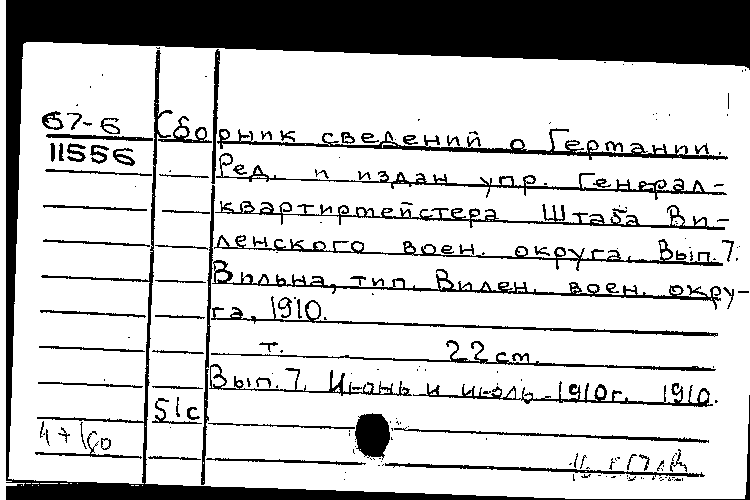 67-6 Сборник сведений о Германии.
11556 Ред. и издан упр. Генерал-
квартирмейстера Штаба Ви-
ленского воен. округа. Вып. 7.
Вильна, тип. Вилен. воен. окру-
га, 1910.
т. 22 cm.
Вып. 7. Июнь и июль 1910г. 1910.
51с.